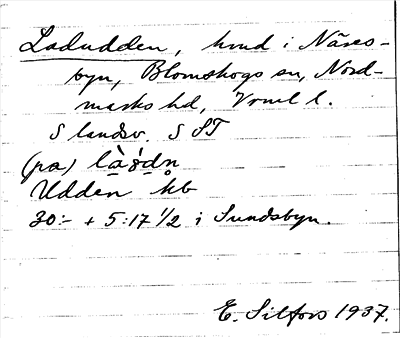 Ladudden, hmd i Näres-
byn, Blomskogs sn, Nord-
marks hd, Vrml l.
S landsv. S ST
(pa)
Udden kb
30:- + 5:17 1/2 i Sundsbyn.
E. Silfors 1937.